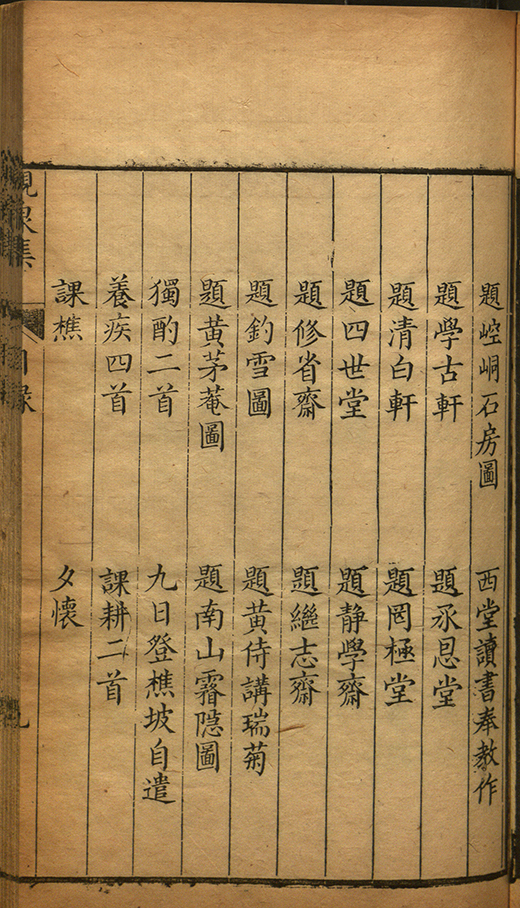 題崆峒石房圖 西堂讀書奉教作
題學古軒 題承恩堂
題清白軒 題罔極堂
題四世堂 題靜學齋
題修省齋 題繼志齋
題釣雪圖 題黃侍講瑞菊
題黃茅菴圖 題南山霧隱圖
獨酌二首 九日登樵坡自遣
養疾四首 課耕二首
課樵 夕懷
集 目錄 九